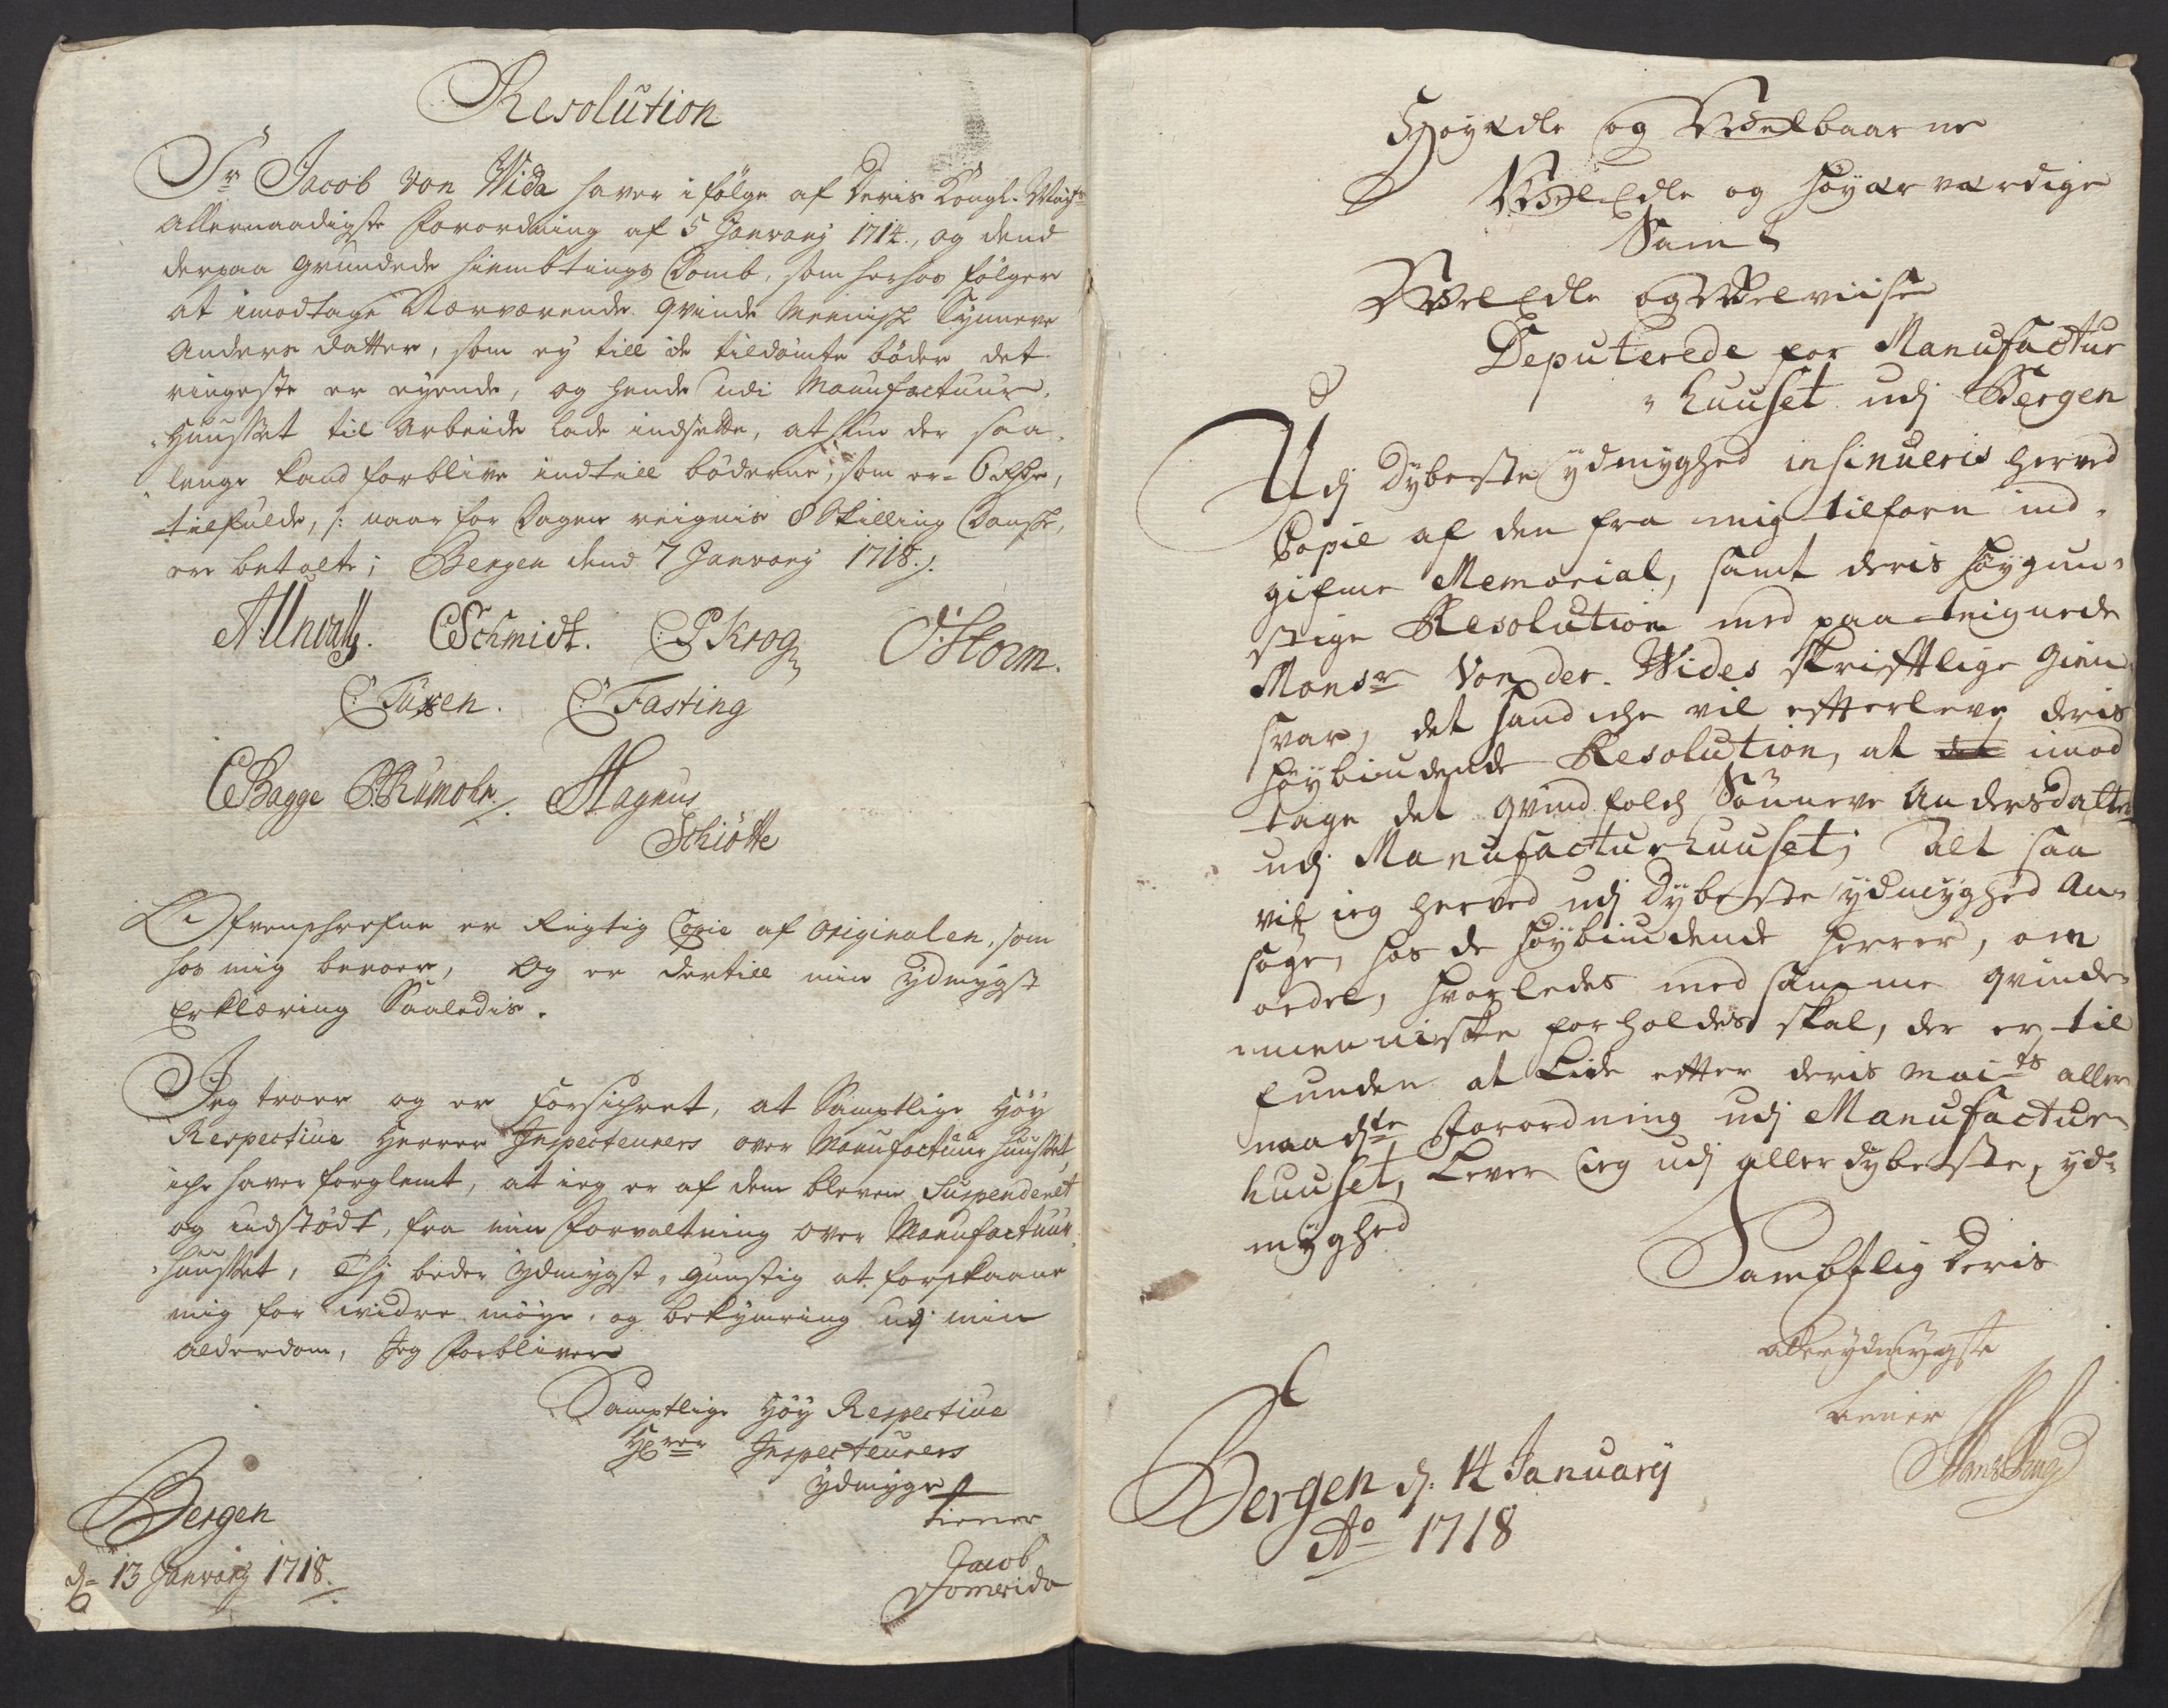 Resolution
Sr Jacob von Wida haver i fölge af Deris Kongl. Mayts
Allernaadigste Forordning af 5 Janvarj 1714., og dend
derpaa grundede hiembtings Domb, som herhos fölger
at imodtage Nærværende qvinde Menniske Synneve
Anders datter, som ey till de tildömte böder det
ringeste er eyende, og hende udi Manufactuur-
Huusset til Arbeide lade indsette, at hun der saa
lenge kand forblive indtill böderne, som er 6 Rdr,
tilfulde, /: naar for Dagen reignis 8 Skilling Danske,
ere betalte; Bergen dend 7 Janvarj 1718 /.
CSchmidt. CPKrog OStorm.
C: Tuxen. C: Fasting
CBagge Rumohr. /. Hagenus
Schiötte
Ofvenskrefne er Rigtig Copie af originalen, som
hos mig beroer, Og er dertill min ydmygst
Erklæring Saaledis.
Jeg troer og er forsichret, at Samptlige Höy
Respective Herrer Inspecteurers over Manufactuur huusset,
iche haver forglemt, at ieg er af dem bleven Suspenderet
og udstödt, fra min forvaltning over Manufactuur
huusset, Thj beder ydmygst, gunstig at forskaane
mig for widre möye, og bekymring udj min
alderdom, Jeg forbliver
Samptlige Höy Respective
Herrer Inspecteurers
ydmygst
tiener
Bergen
d= 13 Janvarj 1718.
Jacob
Vonwida
Höyædle og Welbaarne
WelEdle og Höyærværdige
Samt
WelEdle og Welviise
Deputerede for Manufactur
huuset udj Bergen
Udj Dybeste ydmyghed insinueris herved
Copie af den fra mig tilforn ind-
gifne Memorial, samt deris höygun-
stige Resolution med paateignede
Monsr Von der Wides skriftlige Gien-
svar, det hand iche vil efterleve deris
höybiudende Resolution, at det imod
tage det qvindfolch Sönneve Andersdatter
udj Manufacturhuuset; Alt saa
vil ieg herved udj Dybeste ydmyghed An-
söge, hos de höybiudende Herrer, om
ordre, hvorledes med samme qvinde-
menniske forholdes skal, der er til
funden at Lide efter deris Maits aller
naadste Forordning udj Manufactur
huuset, Lever ieg udj allerdybeste yd-
myghed
Sambtlig Deris
allerydmygste
tiener
Bergen d. 14 January
Ao 1718